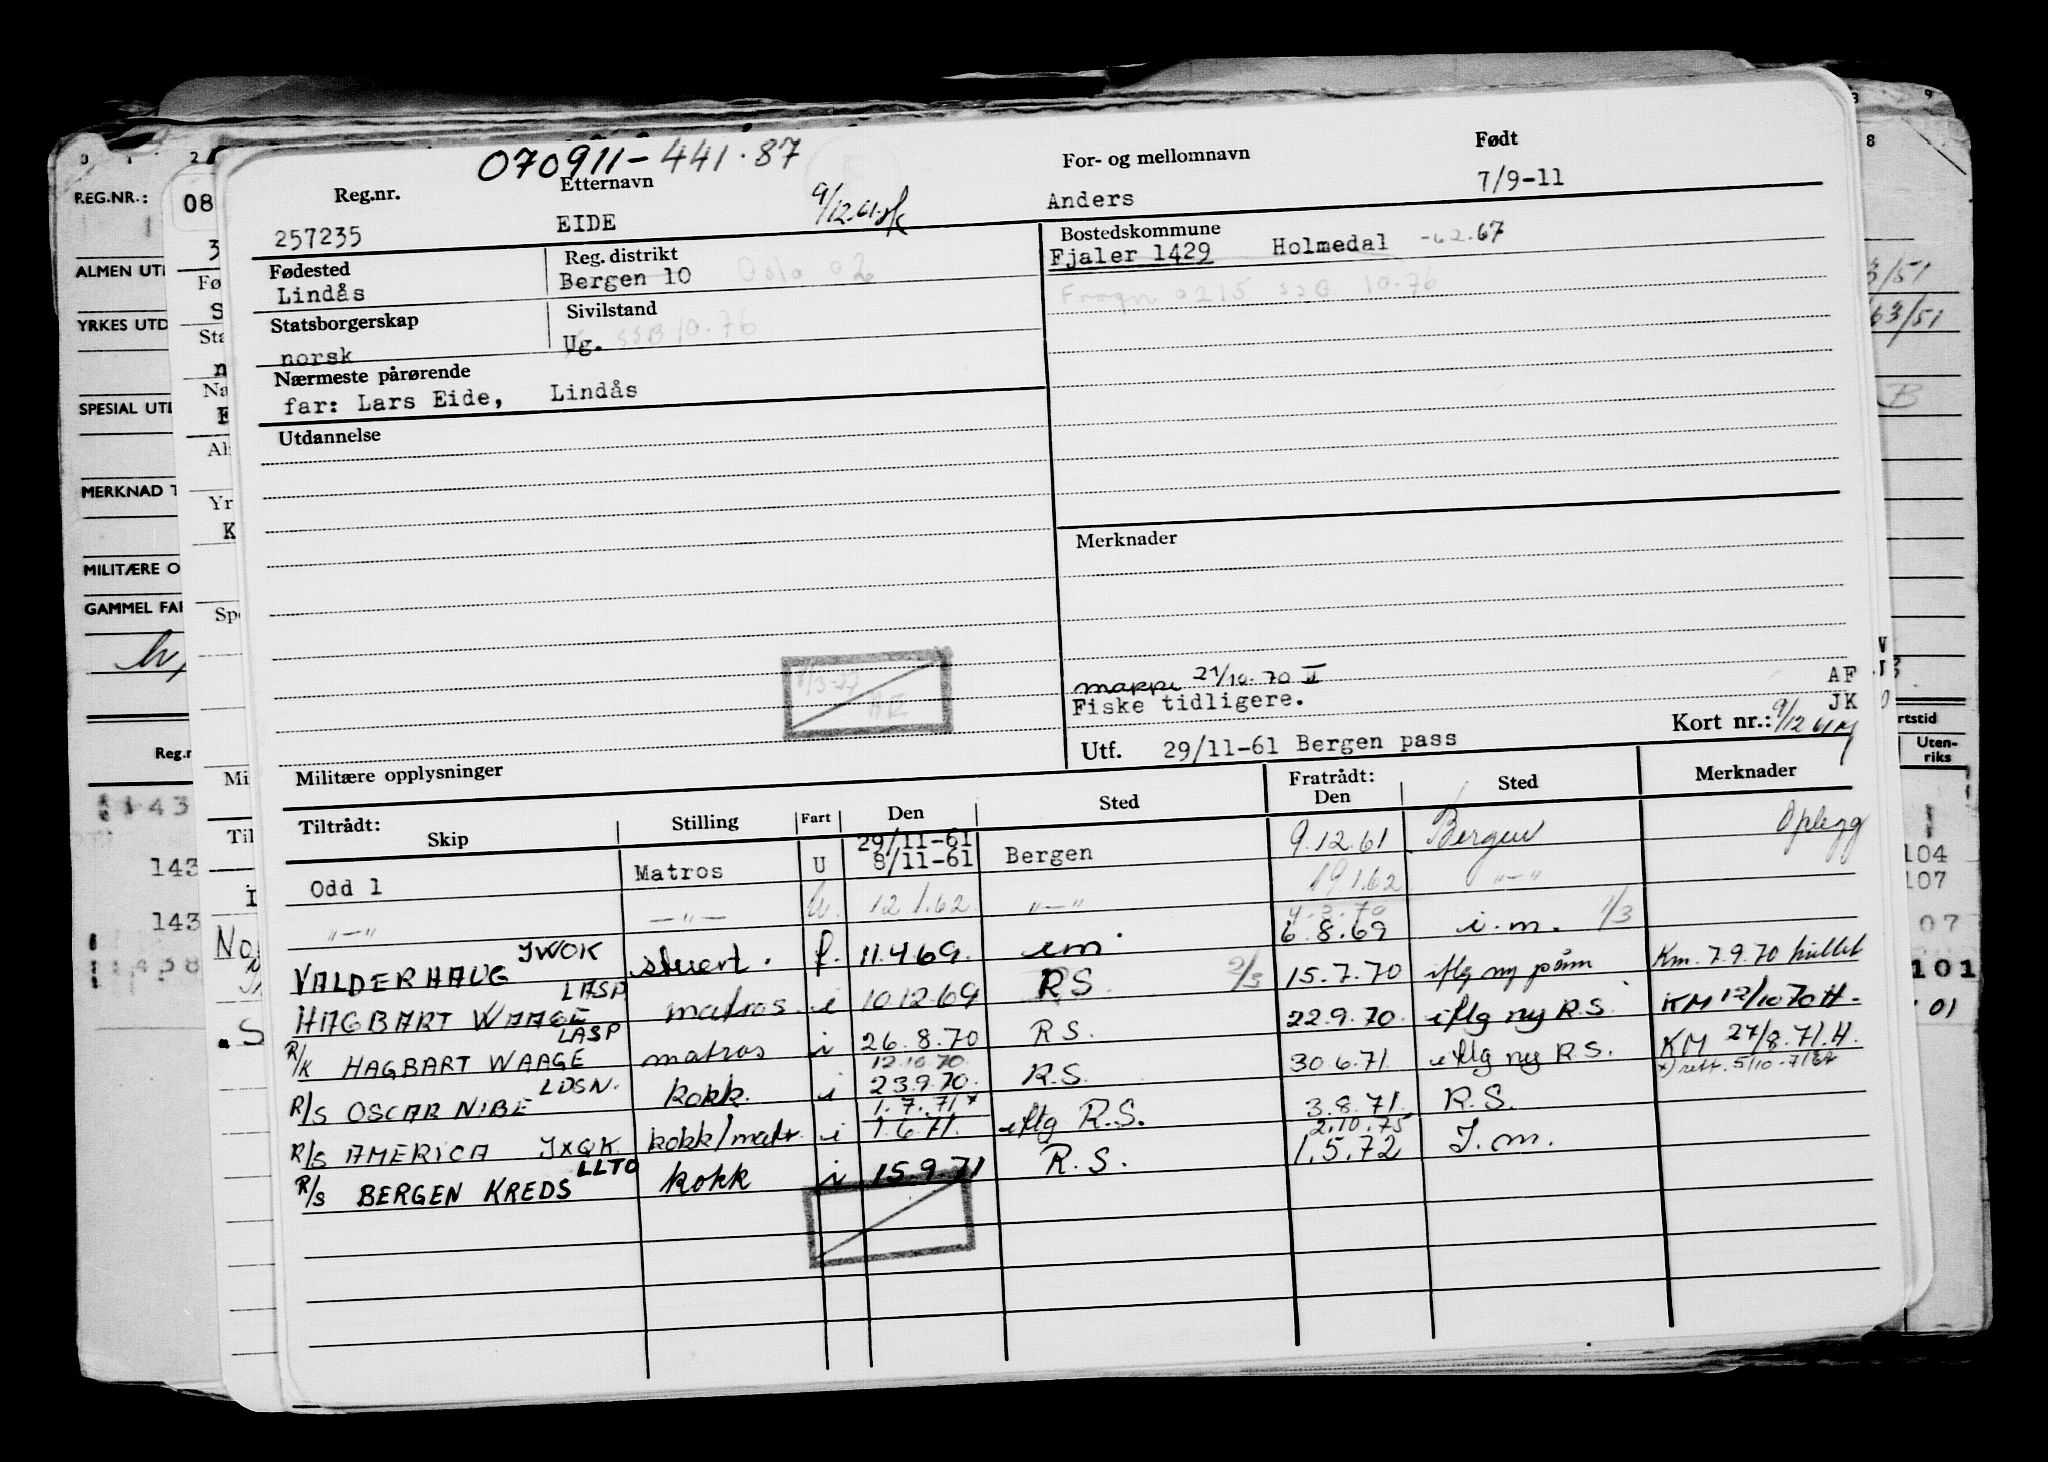 070911-441.87
Reg.nr. Etternavn For- og mellomnavn Født
257235 EIDE 9/12.61 Anders 7/9-11
Fødested Reg. distrikt Bostedskommune
Lindås Bergen 10 Oslo 02 Fjaler 1429 Holmedal -62.67
Statsborgerskap Sivilstand Frogn 0215 SSB 10.76
norsk Ug. SSB 10.76
Nærmeste pårørende
far: Lars Eide, Lindås
Utdannelse
Merknader
mappe 21/10.70 II
Fiske tidligere.
AF
JK
Kort nr.: 9/12 61
Utf. 29/11-61 Bergen pass
Militære opplysninger
Tiltrådt: Fratrådt:
Skip Stilling Fart Den Sted Den Sted Merknader
29/11-61
Odd 1 Matros U 8/11-61 Bergen 9.12.61 Bergen Oplegg
—"— —"— U. 12.1.62 —"— 19.1.62 —"—
4.3.70
VALDERHAUG JWOK stuert. f. 11.4.69. im 6.8.69 i.m. 1/3
HAGBART WAAGE LASP matros. i 10.12.69 RS 2/3 15.7.70 iflg ny Km. 7.9.70 hullet
R/K HAGBART WAAGE LASP matros i 26.8.70 R.S. 22.9.70. iflg ny R.S. KM 12/10 70 H.
12.10.70
R/S OSCAR NIBE LDSN. kokk. i 23.9.70. R.S. 30.6.71. iflg ny R.S. KM 27/8.71.H.
x) rett. 5/10-71
1.7.71 x
R/S AMERICA JXQK. kokk/matr. i 1.6.71. iflg R.S. 3.8.71. R.S.
2.10.75
R/S BERGEN KREDS LLTO kokk i 15.9.71 R.S. 1.5.72 I.m.
REG.NR.:
08
YRKES UTD
MERKNAD T
MILITÆRE O
Reg.n
143
143
143
rtstid
Uten-
riks
104
107
07
101
01